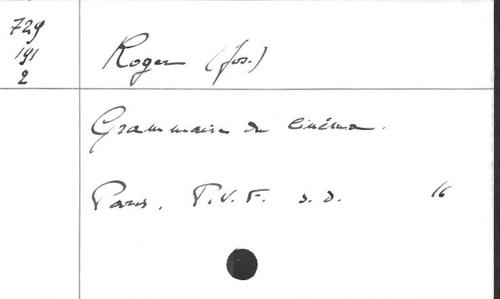 729
191
2
Roger (Jos.)
Grammaire du cinéma.
Paris. P.V.F. s.d. 16